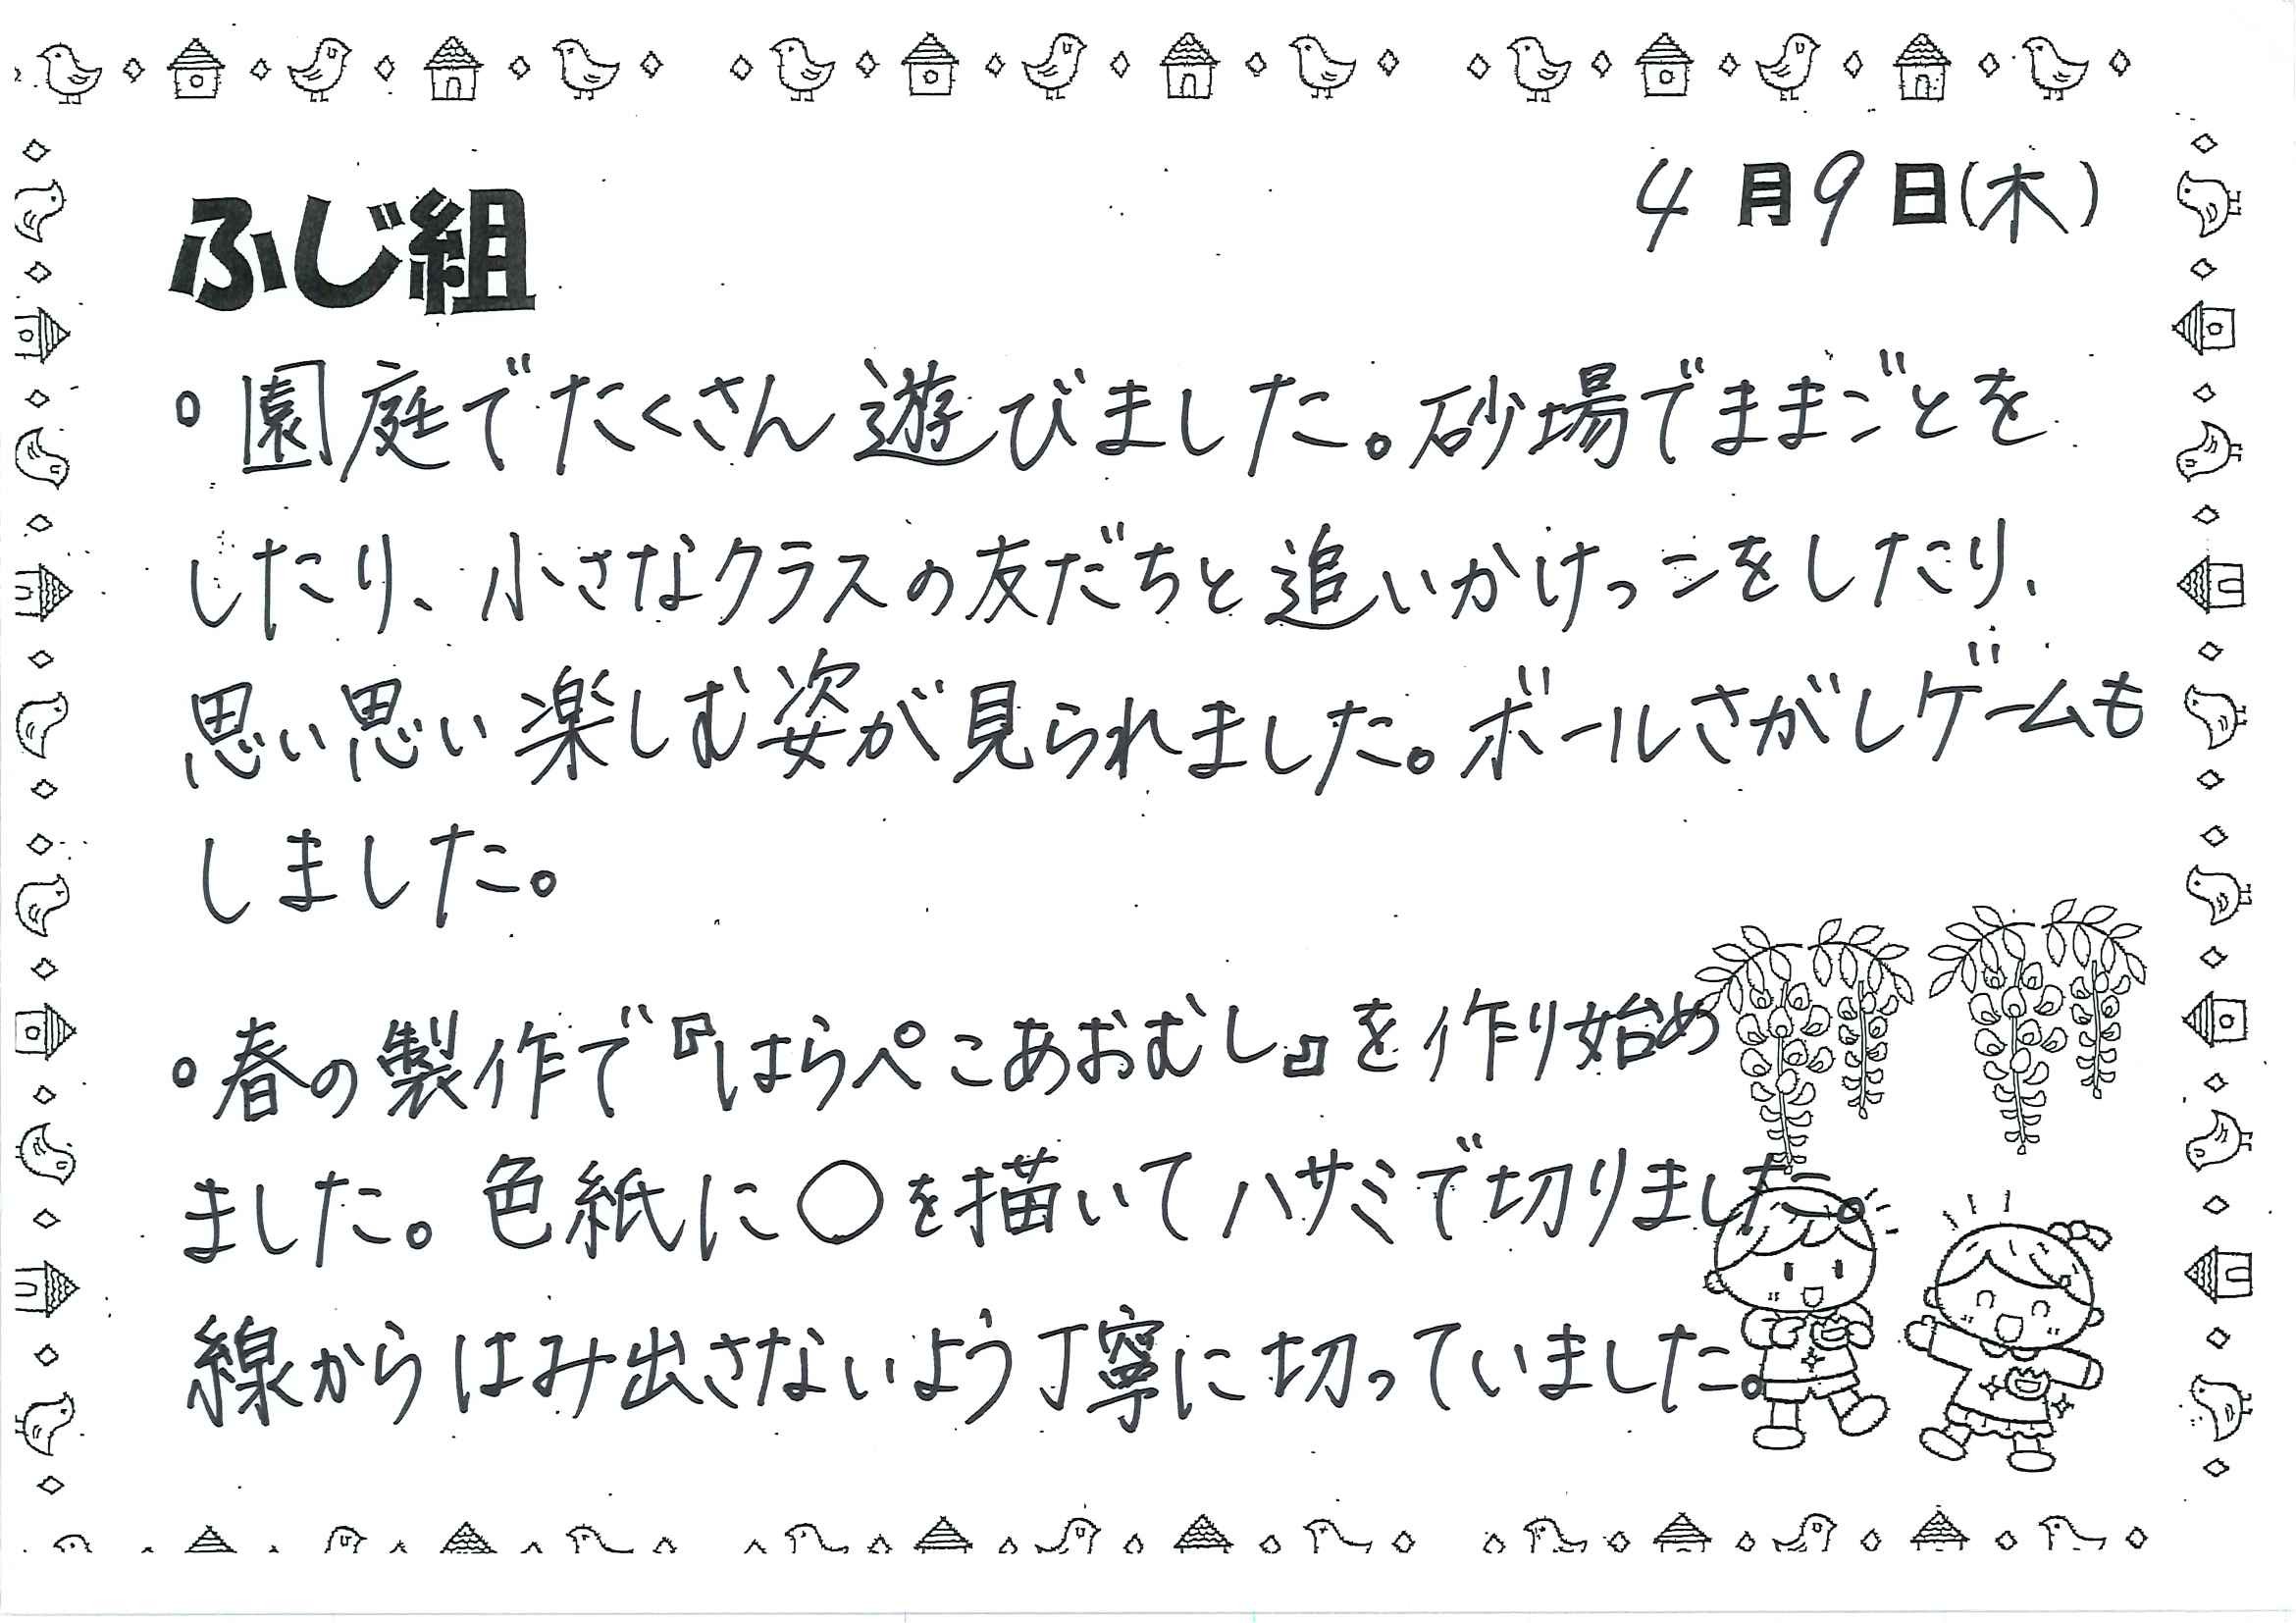 4月9日(木)
ふじ組
○園庭でたくさん遊びました。砂場でままごとを
したり、小さなクラスの友だちと追いかけっこをしたり、
思い思い楽しむ姿が見られました。ボールさがしゲームも
しました。
○春の製作で『はらぺこあおむし』を作り始め
ました。色紙に○を描いてハサミで切りました。
線からはみ出さないよう丁寧に切っていました。